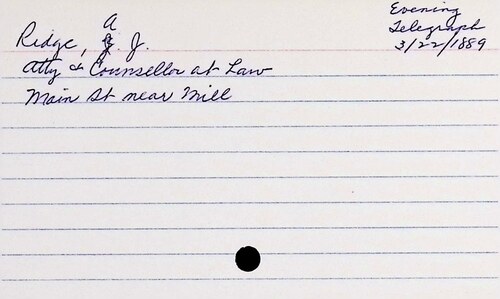 Evening
Telegraph
3/22/1889
Ridge, A. J.
Atty & Counsellor at Law
Main St near Mill